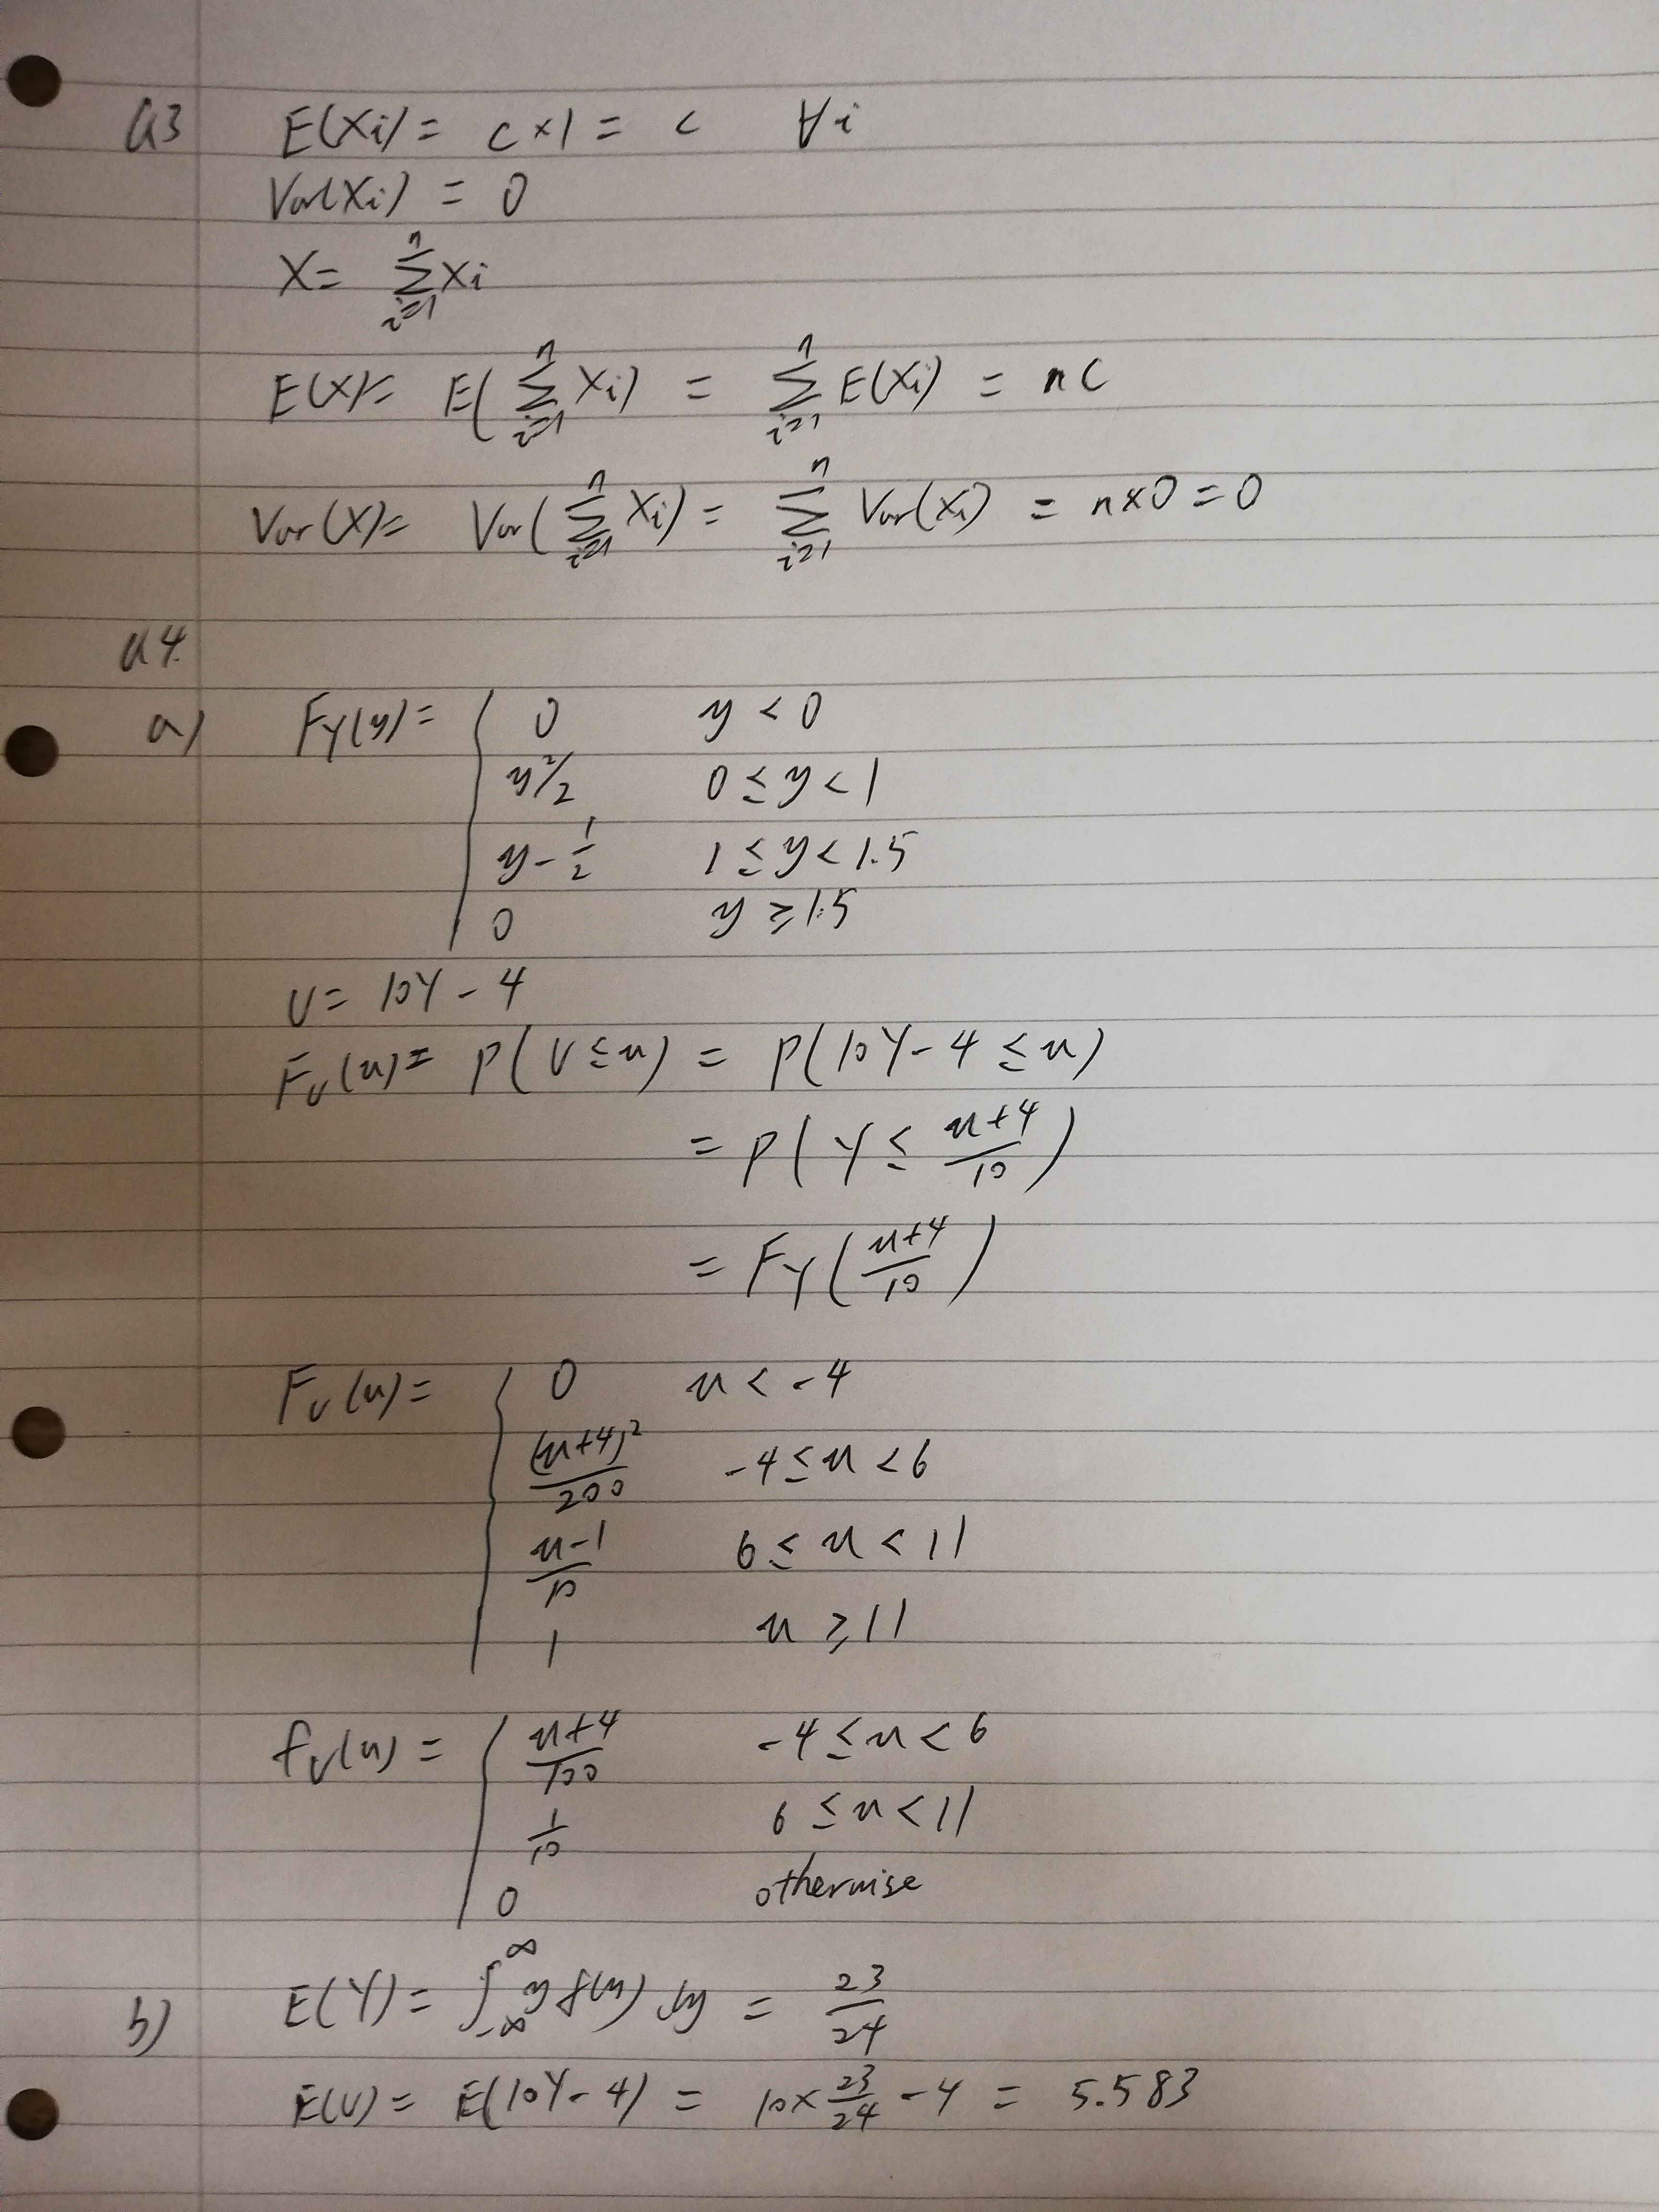 Q3 E(Xi) = c×1 = c ∀i
Var(Xi) = 0
X = ∑_{i=1}^{n} Xi
E(X) = E(∑_{i=1}^{n} Xi) = ∑_{i=1}^{n} E(Xi) = nc
Var(X) = Var(∑_{i=1}^{n} Xi) = ∑_{i=1}^{n} Var(Xi) = n×0 = 0
Q4.
a) F_Y(y) = { 0 y < 0
y²/2 0 ≤ y < 1
y - 1/2 1 ≤ y < 1.5
0 y ≥ 1.5
U = 10Y - 4
F_U(u) = P(U ≤ u) = P(10Y - 4 ≤ u)
= P(Y ≤ (u+4)/10)
= F_Y((u+4)/10)
F_U(u) = { 0 u < -4
(u+4)²/200 -4 ≤ u < 6
(u-1)/10 6 ≤ u < 11
1 u ≥ 11
f_U(u) = { (u+4)/100 -4 ≤ u < 6
1/10 6 ≤ u < 11
0 otherwise
b) E(Y) = ∫_{-∞}^{∞} y f(y) dy = 23/24
E(U) = E(10Y - 4) = 10×23/24 - 4 = 5.583